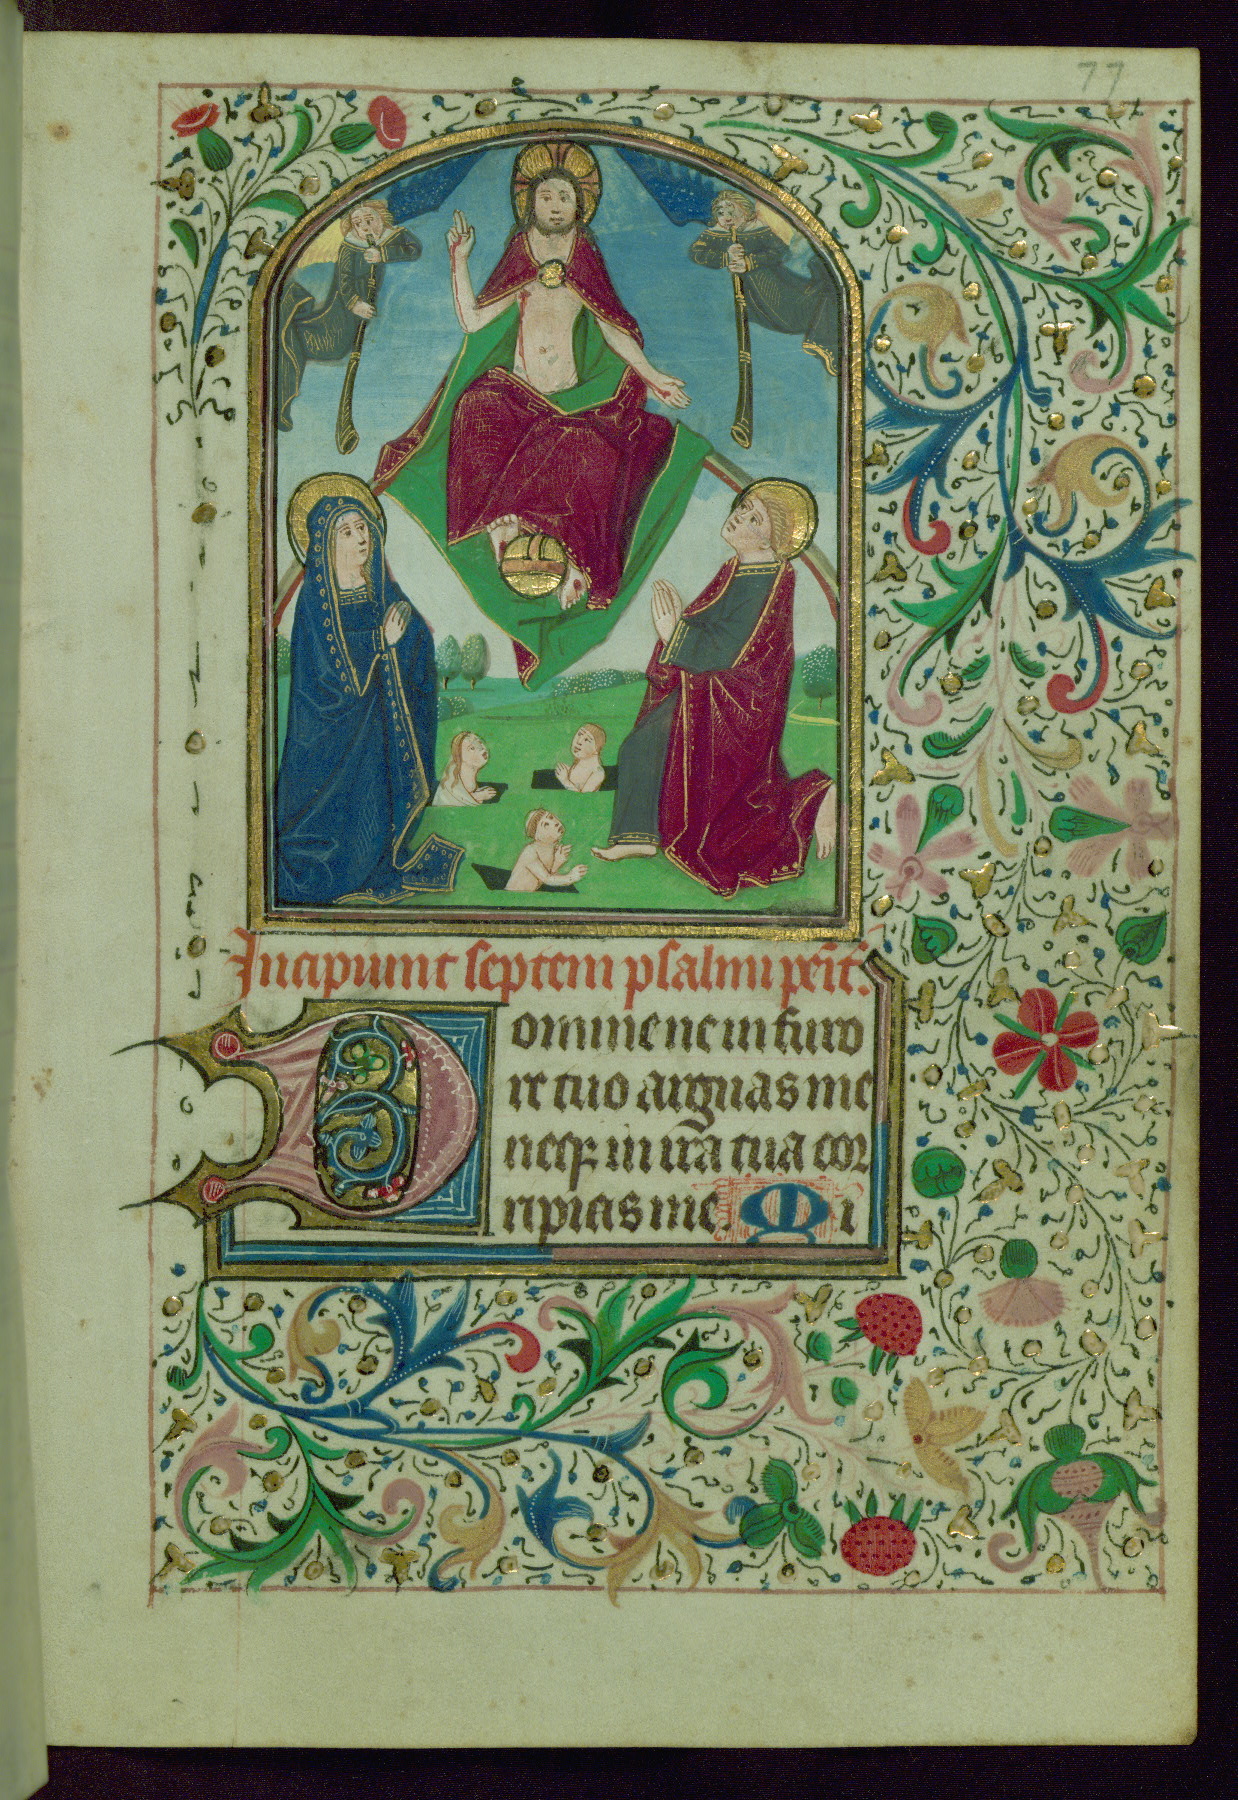 77
Incipiunt septem psalmi peñt.
Domine ne in furo
re tuo arguas me
neqꝫ in ira tua cor
ripias me Mi